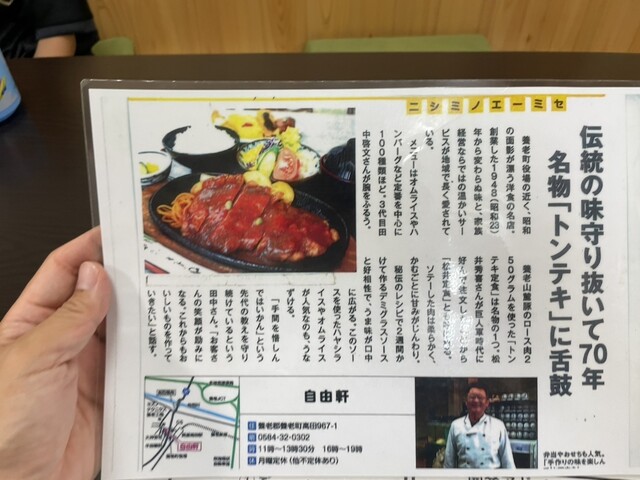 ニシミノエーミセ
伝統の味守り抜いて70年
名物「トンテキ」に舌鼓
養老町役場の近く、昭和
の面影が漂う洋食の名店。
創業した1948(昭和23)
年から変わらぬ味と、家族
経営ならではの温かいサー
ビスが地域で長く愛されて
いる。
メニューはオムライスやハ
ンバーグなど定番を中心に
100種類ほど。3代目田
中啓文さんが腕をふるう。
養老山麓豚のロース肉2
50グラムを使った「トン
テキ定食」は名物の1つ。松
井秀喜さんが巨人軍時代に
ソテーした肉は柔らかく、
かむごとに甘みがじんわり。
秘伝のレシピで2週間か
けて作るデミグラスソース
と好相性で、うま味が口中
に広がる。このソー
スを使ったハヤシラ
イスやオムライス
が人気なのも、うな
ずける。
「手間を惜しん
ではいかん」という
先代の教えを守り
続けているという
田中さん。「お客さ
んの笑顔が励みに
なる。これからもお
いしいものを作って
いきたい」と話す。
自由軒
自由軒
住 養老郡養老町高田967-1
0584-32-0302
11時〜13時30分 16時〜19時
休 月曜定休(他不定休あり)
弁当やおせちも人気。
「手作りの味を楽しん